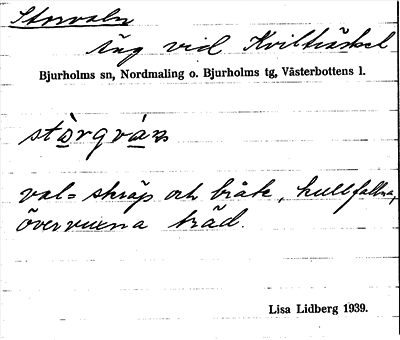 Storvaln
Äng vid Kvilträsket
Bjurholms sn, Nordmaling o. Bjurholms tg, Västerbottens l.
val = skräp och bråte, kullfallna,
övervuxna träd.
Lisa Lidberg 1939.